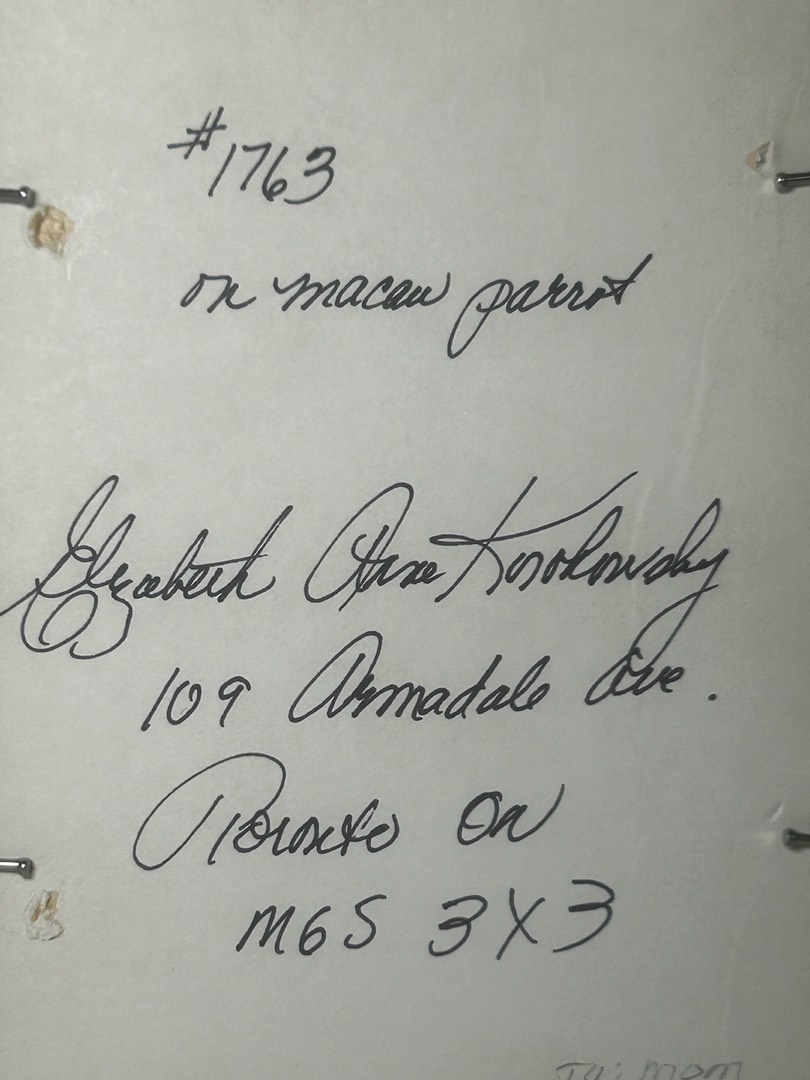 #1763
on macaw parrot
Elizabeth Anne
109 Armadale Ave.
Toronto On
M6S 3X3
Mom